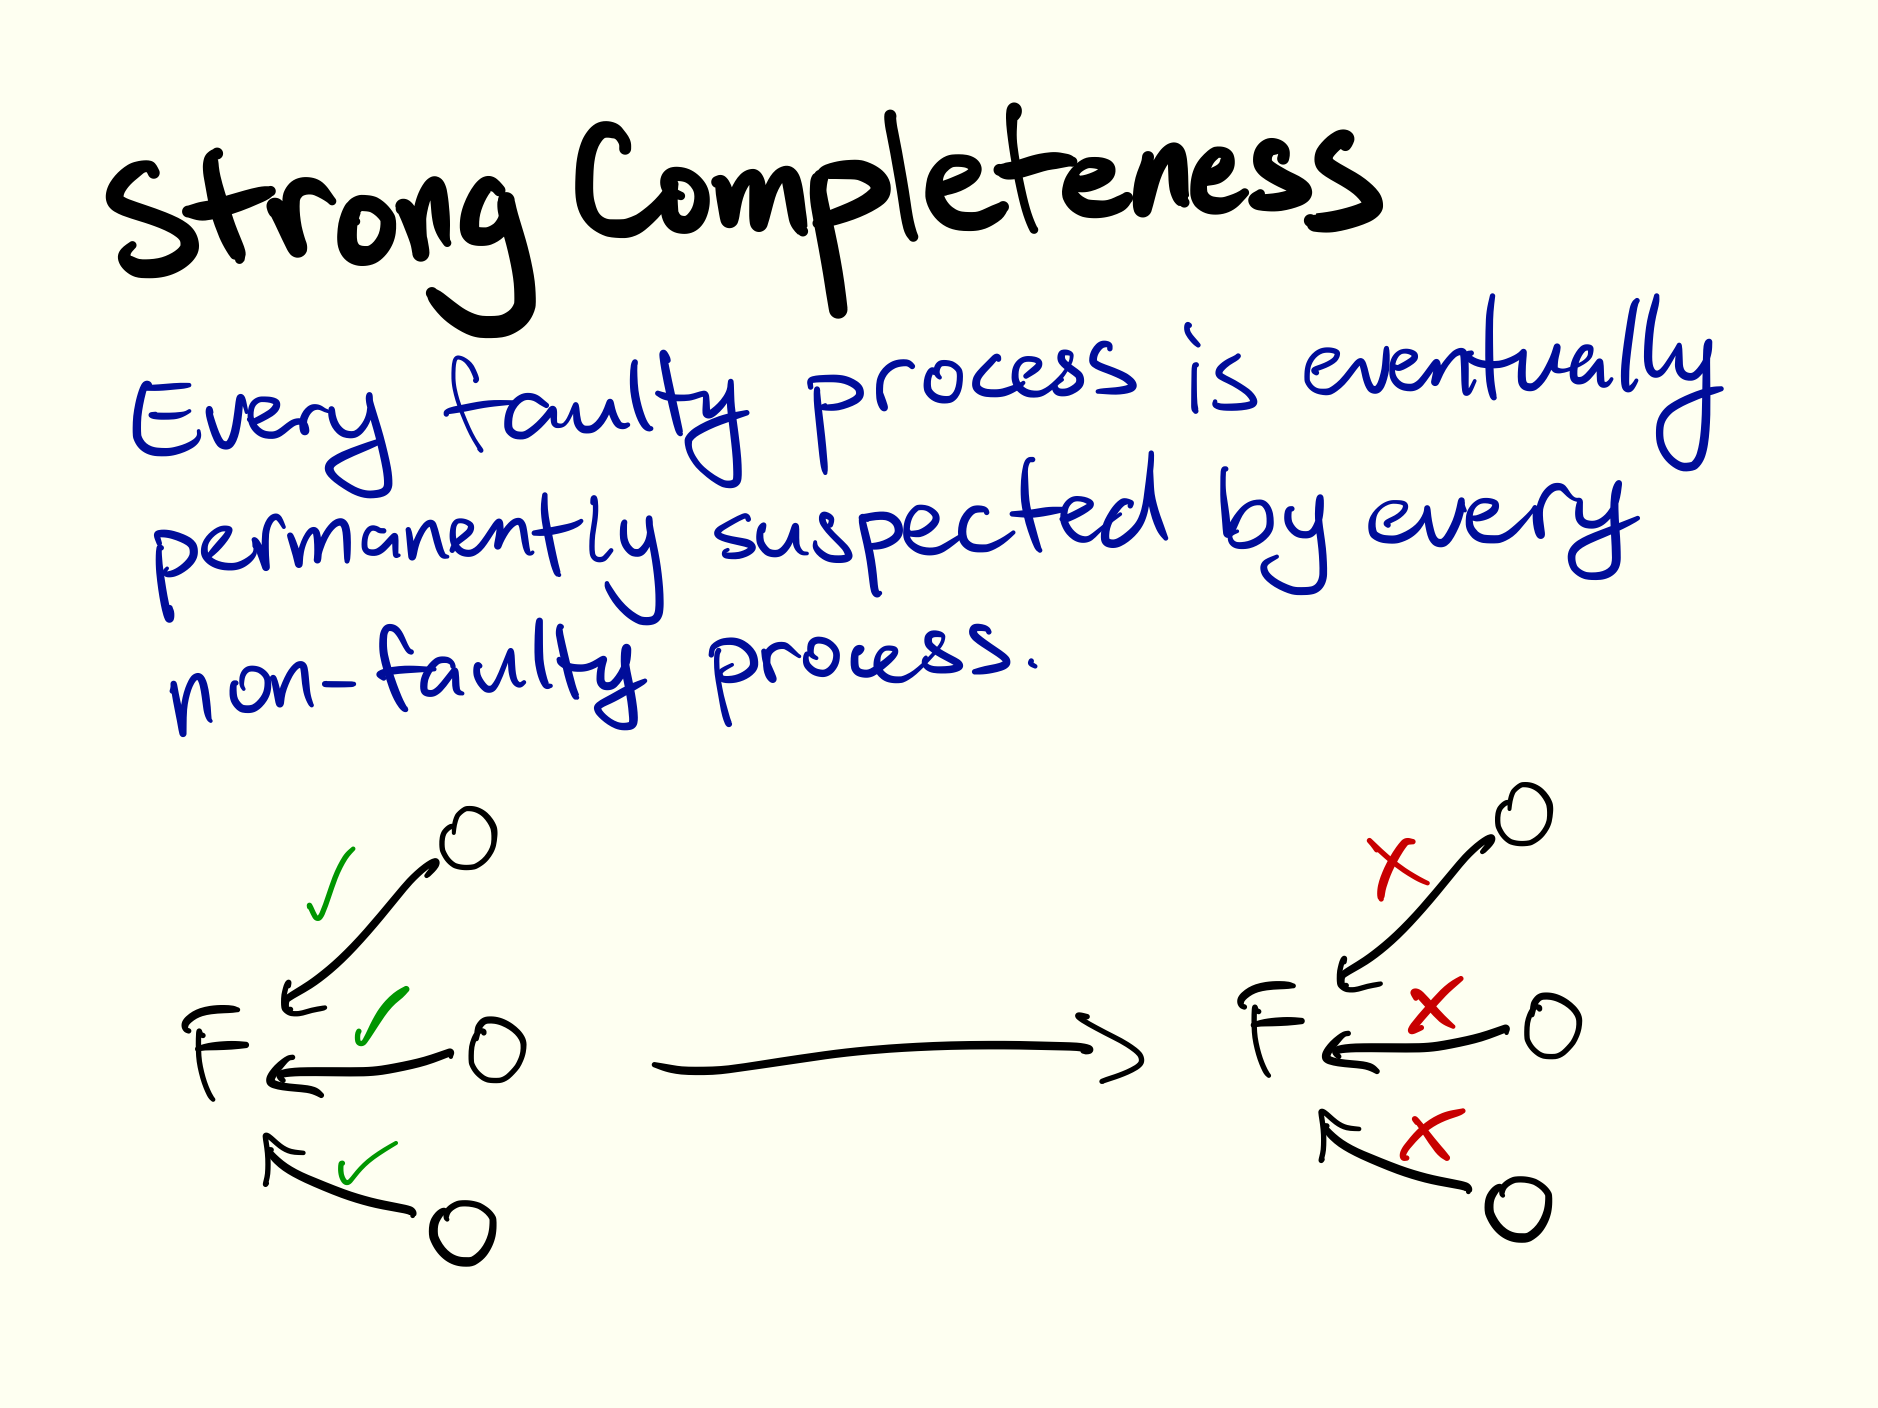 Strong Completeness
Every faulty process is eventually
permanently suspected by every
non-faulty process.
F
F